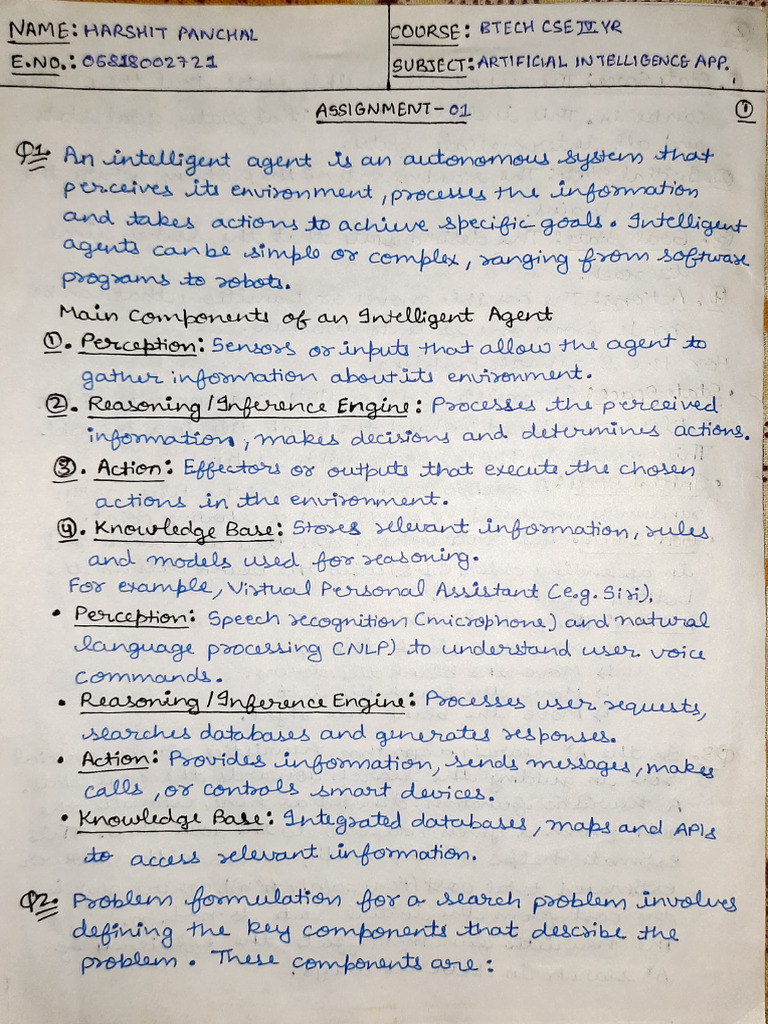 NAME: HARSHIT PANCHAL
E.NO.: 06818002721
COURSE: BTECH CSE IV YR
SUBJECT: ARTIFICIAL INTELLIGENCE APP.
ASSIGNMENT-01
①
Q1. An intelligent agent is an autonomous system that
perceives its environment, processes the information
and takes actions to achieve specific goals. Intelligent
agents can be simple or complex, ranging from software
programs to robots.
Main Components of an Intelligent Agent
①. Perception: Sensors or inputs that allow the agent to
gather information about its environment.
②. Reasoning/Inference Engine: Processes the perceived
information, makes decisions and determines actions.
③. Action: Effectors or outputs that execute the chosen
actions in the environment.
④. Knowledge Base: Stores relevant information, rules
and models used for reasoning.
For example, Virtual Personal Assistant (e.g. Siri).
• Perception: Speech recognition (microphone) and natural
language processing (NLP) to understand user voice
commands.
• Reasoning/Inference Engine: Processes user requests,
searches databases and generates responses.
• Action: Provides information, sends messages, makes
calls, or controls smart devices.
• Knowledge Base: Integrated databases, maps and APIs
to access relevant information.
Q2. Problem formulation for a search problem involves
defining the key components that describe the
problem. These components are: